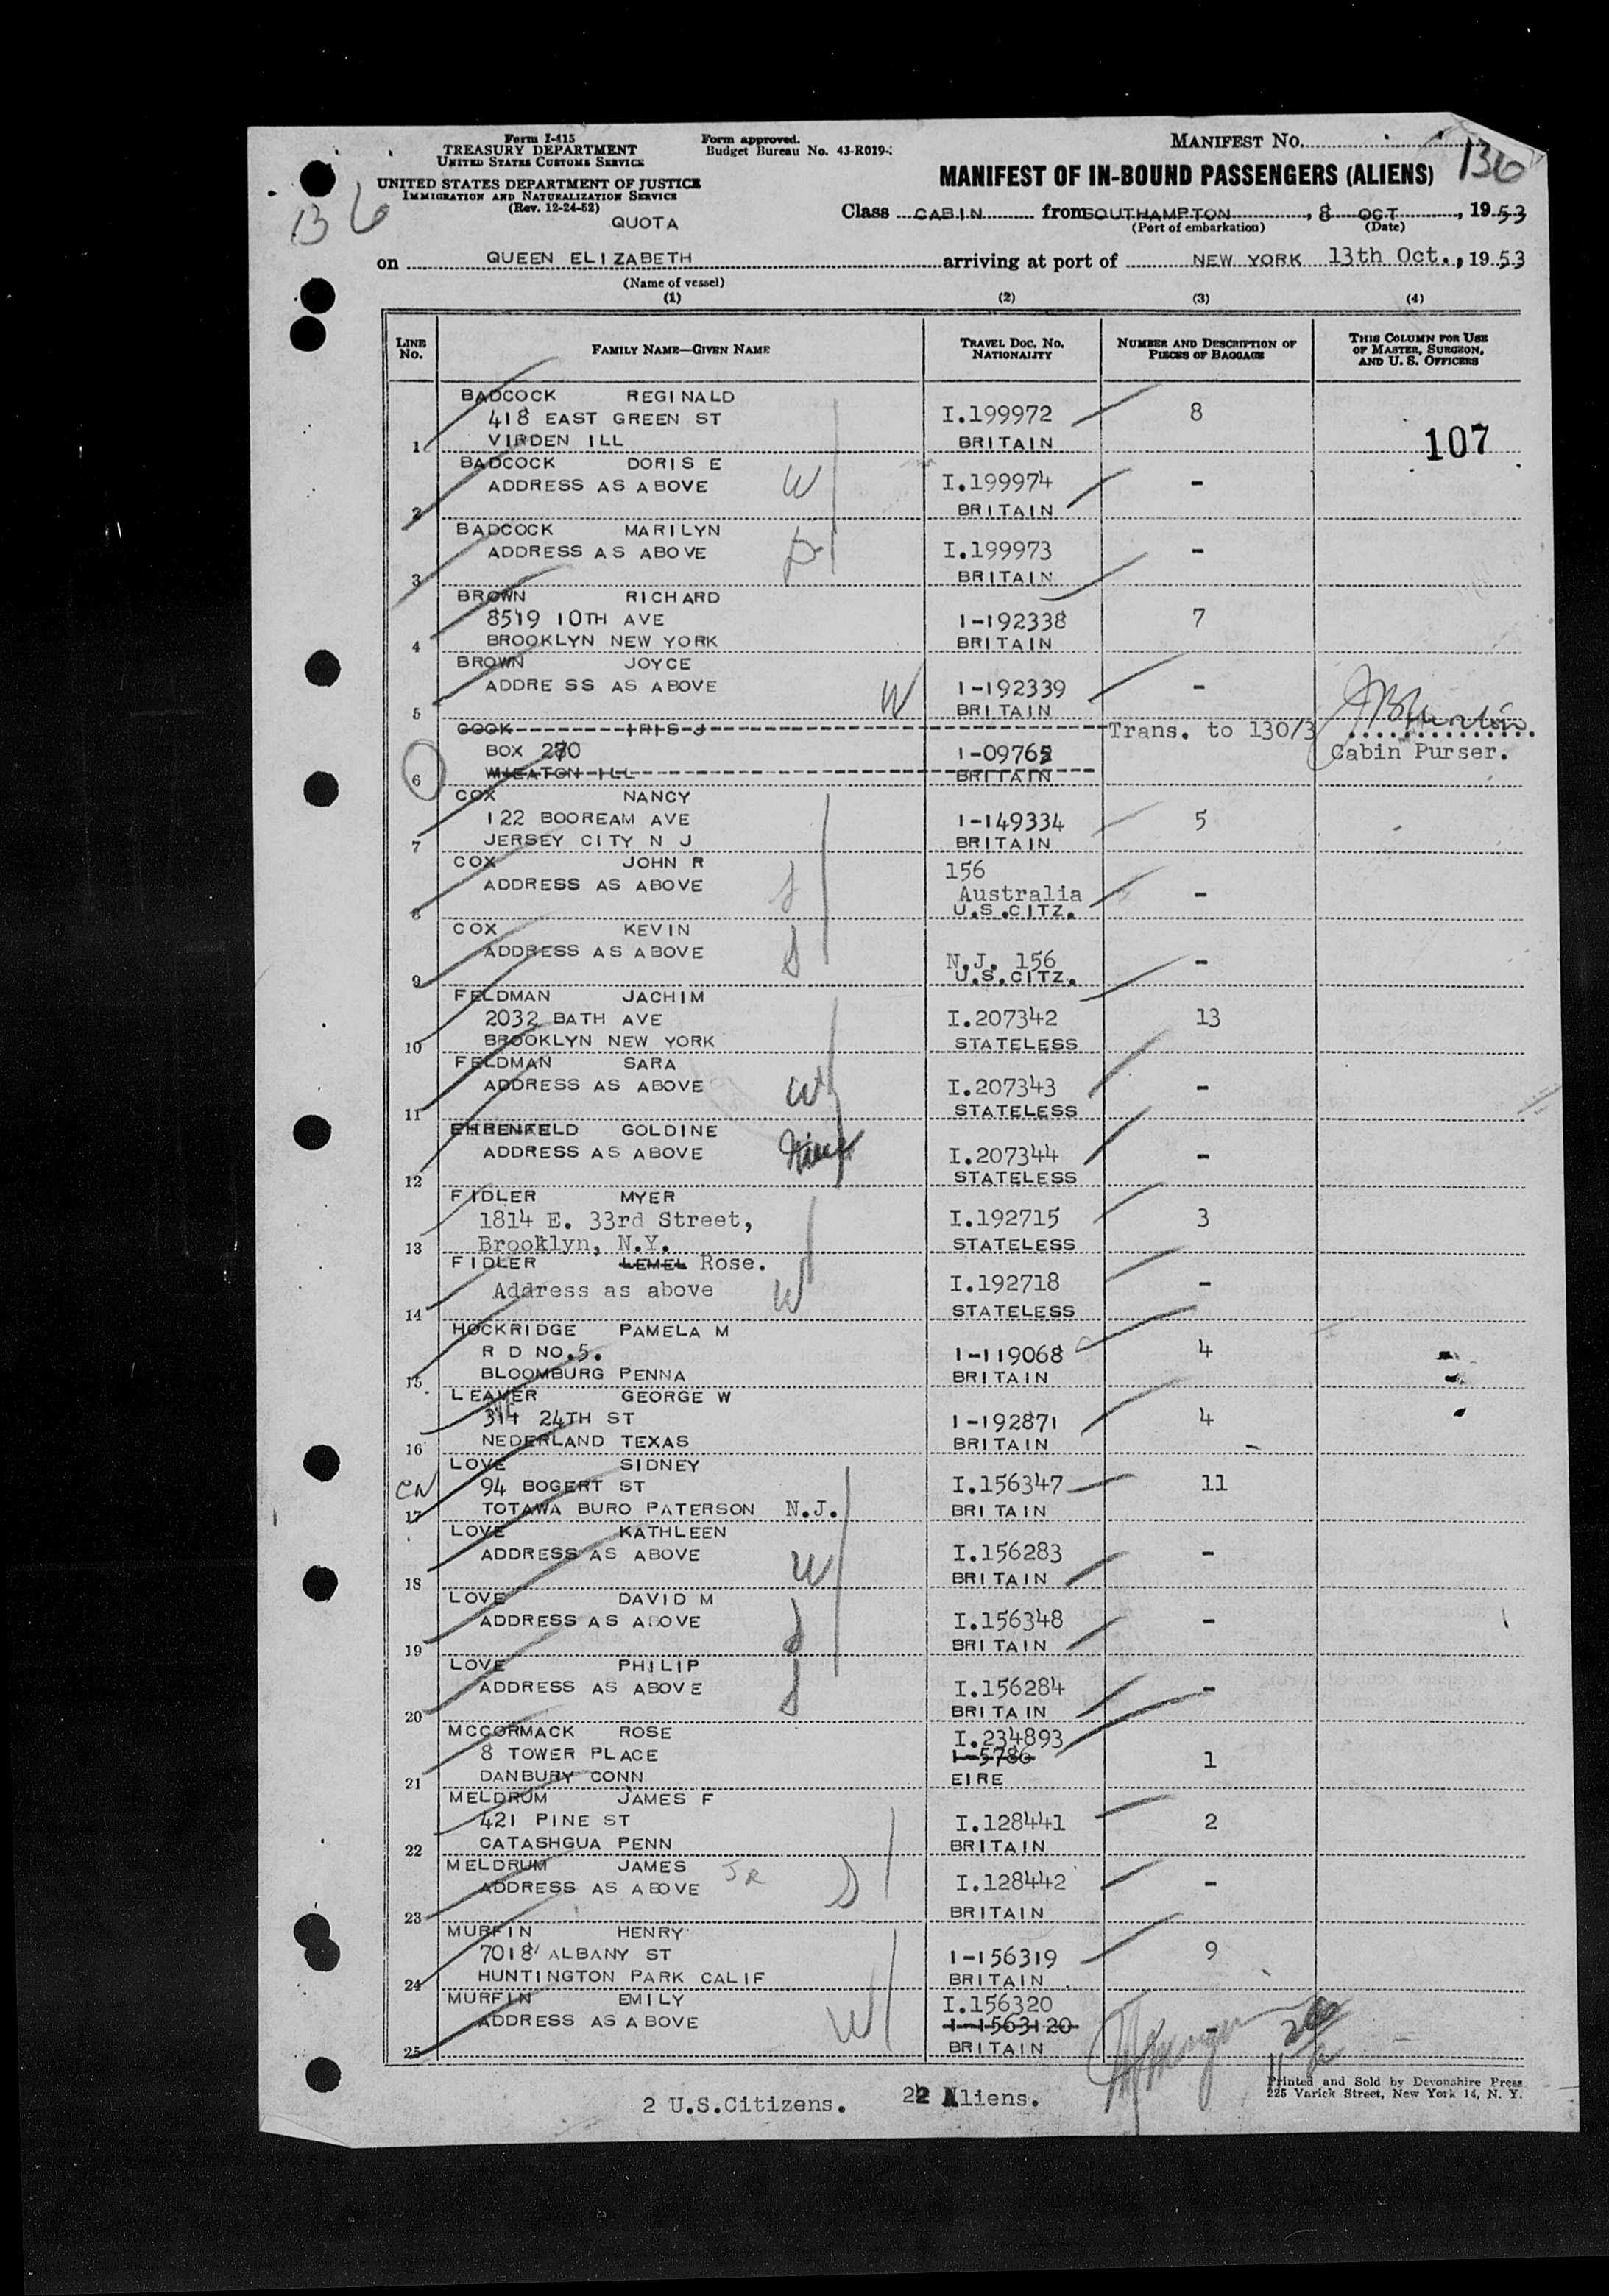 Form I-415
TREASURY DEPARTMENT
UNITED STATES CUSTOMS SERVICE
Form approved.
Budget Bureau No. 43-R019-
MANIFEST NO.
136
UNITED STATES DEPARTMENT OF JUSTICE
IMMIGRATION AND NATURALIZATION SERVICE
(Rev. 12-24-52)
136
QUOTA
MANIFEST OF IN-BOUND PASSENGERS (ALIENS)
Class CABIN from SOUTHAMPTON, 8 OCT, 1953
(Port of embarkation) (Date)
on QUEEN ELIZABETH arriving at port of NEW YORK 13th Oct., 1953
(Name of vessel)
(1) (2) (3) (4)
LINE NO.
FAMILY NAME—GIVEN NAME
TRAVEL DOC. NO. NATIONALITY
NUMBER AND DESCRIPTION OF PIECES OF BAGGAGE
THIS COLUMN FOR USE OF MASTER, SURGEON, AND U. S. OFFICERS
BADCOCK REGINALD
418 EAST GREEN ST I.199972 8
1 VIRDEN ILL BRITAIN 107
BADCOCK DORIS E
ADDRESS AS ABOVE W I.199974 -
2 BRITAIN
BADCOCK MARILYN
ADDRESS AS ABOVE D I.199973 -
3 BRITAIN
BROWN RICHARD
8519 10TH AVE I-192338 7
4 BROOKLYN NEW YORK BRITAIN
BROWN JOYCE
ADDRESS AS ABOVE W I-192339 -
5 BRITAIN
COOK IRIS J Trans. to 130/3
BOX 270 I-09765 Cabin Purser.
6 WHEATON ILL BRITAIN
COX NANCY
122 BOOREAM AVE I-149334 5
7 JERSEY CITY N J BRITAIN
COX JOHN R 156
ADDRESS AS ABOVE S Australia -
8 U.S.CITZ.
COX KEVIN
ADDRESS AS ABOVE S N.J. 156 -
9 U.S.CITZ.
FELDMAN JACHIM
2032 BATH AVE I.207342 13
10 BROOKLYN NEW YORK STATELESS
FELDMAN SARA
ADDRESS AS ABOVE W I.207343 -
11 STATELESS
EHRENFELD GOLDINE
ADDRESS AS ABOVE I.207344 -
12 STATELESS
FIDLER MYER
1814 E. 33rd Street, I.192715 3
13 Brooklyn, N.Y. STATELESS
FIDLER LEMEL Rose.
Address as above W I.192718 -
14 STATELESS
HOCKRIDGE PAMELA M
R D NO.5. I-119068 4
15 BLOOMBURG PENNA BRITAIN
LEAVER GEORGE W
24TH ST I-192871 4
16 NEDERLAND TEXAS BRITAIN
LOVE SIDNEY
CN 94 BOGERT ST I.156347 11
17 TOTAWA BURO PATERSON N.J. BRITAIN
LOVE KATHLEEN
ADDRESS AS ABOVE W I.156283 -
18 BRITAIN
LOVE DAVID M
ADDRESS AS ABOVE S I.156348 -
19 BRITAIN
LOVE PHILIP
ADDRESS AS ABOVE S I.156284 -
20 BRITAIN
MCCORMACK ROSE I.234893
8 TOWER PLACE I-5786 1
21 DANBURY CONN EIRE
MELDRUM JAMES F
421 PINE ST I.128441 2
22 CATASHGUA PENN BRITAIN
MELDRUM JAMES JR
ADDRESS AS ABOVE S I.128442 -
23 BRITAIN
MURFIN HENRY
7018 ALBANY ST I-156319 9
24 HUNTINGTON PARK CALIF BRITAIN
MURFIN EMILY I.156320
ADDRESS AS ABOVE W I-1563120 -
25 BRITAIN
Printed and Sold by Devonshire Press
225 Varick Street, New York 14, N. Y.
2 U.S.Citizens. 22 Aliens.